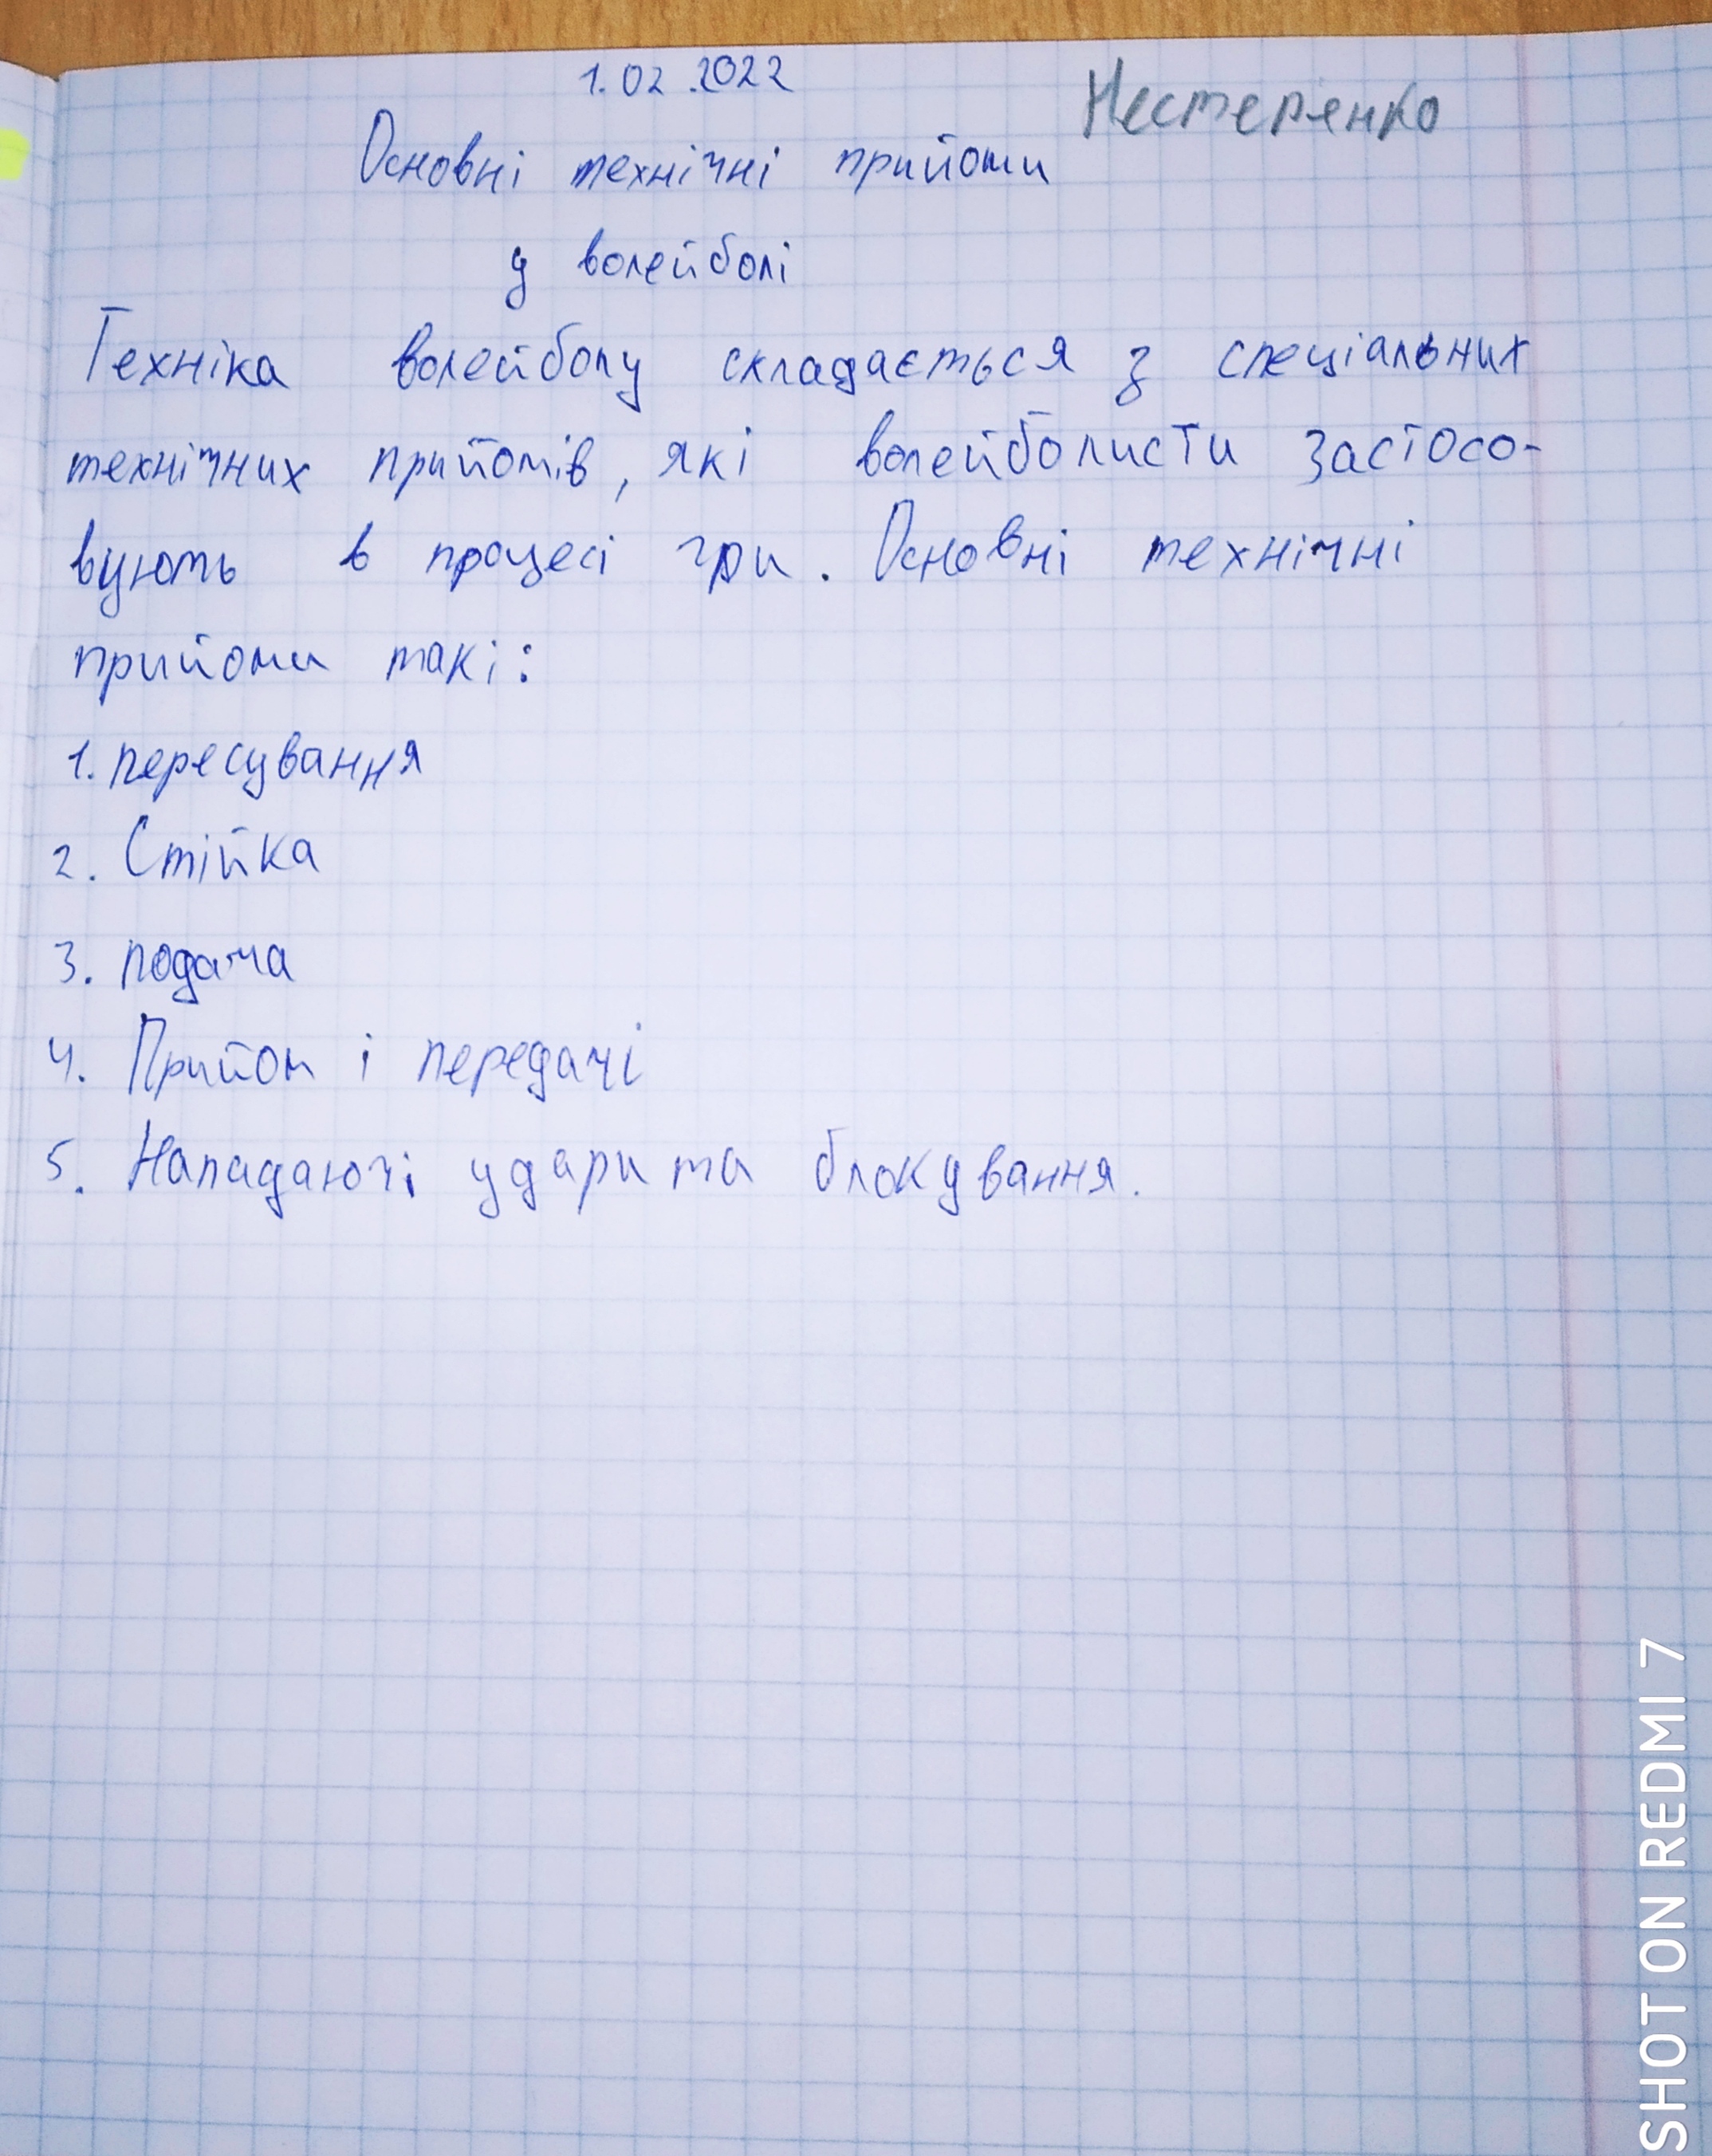 1.02.2022
Нестеренко
Основні технічні прийоми
у волейболі
Техніка волейболу складається з спеціальних
технічних прийомів, які волейболисти застосо-
вують в процесі гри. Основні технічні
прийоми такі:
1. пересування
2. Стійка
3. подача
4. Прийом і передачі
5. Нападаючі удари та блокування.
SHOT ON REDMI 7